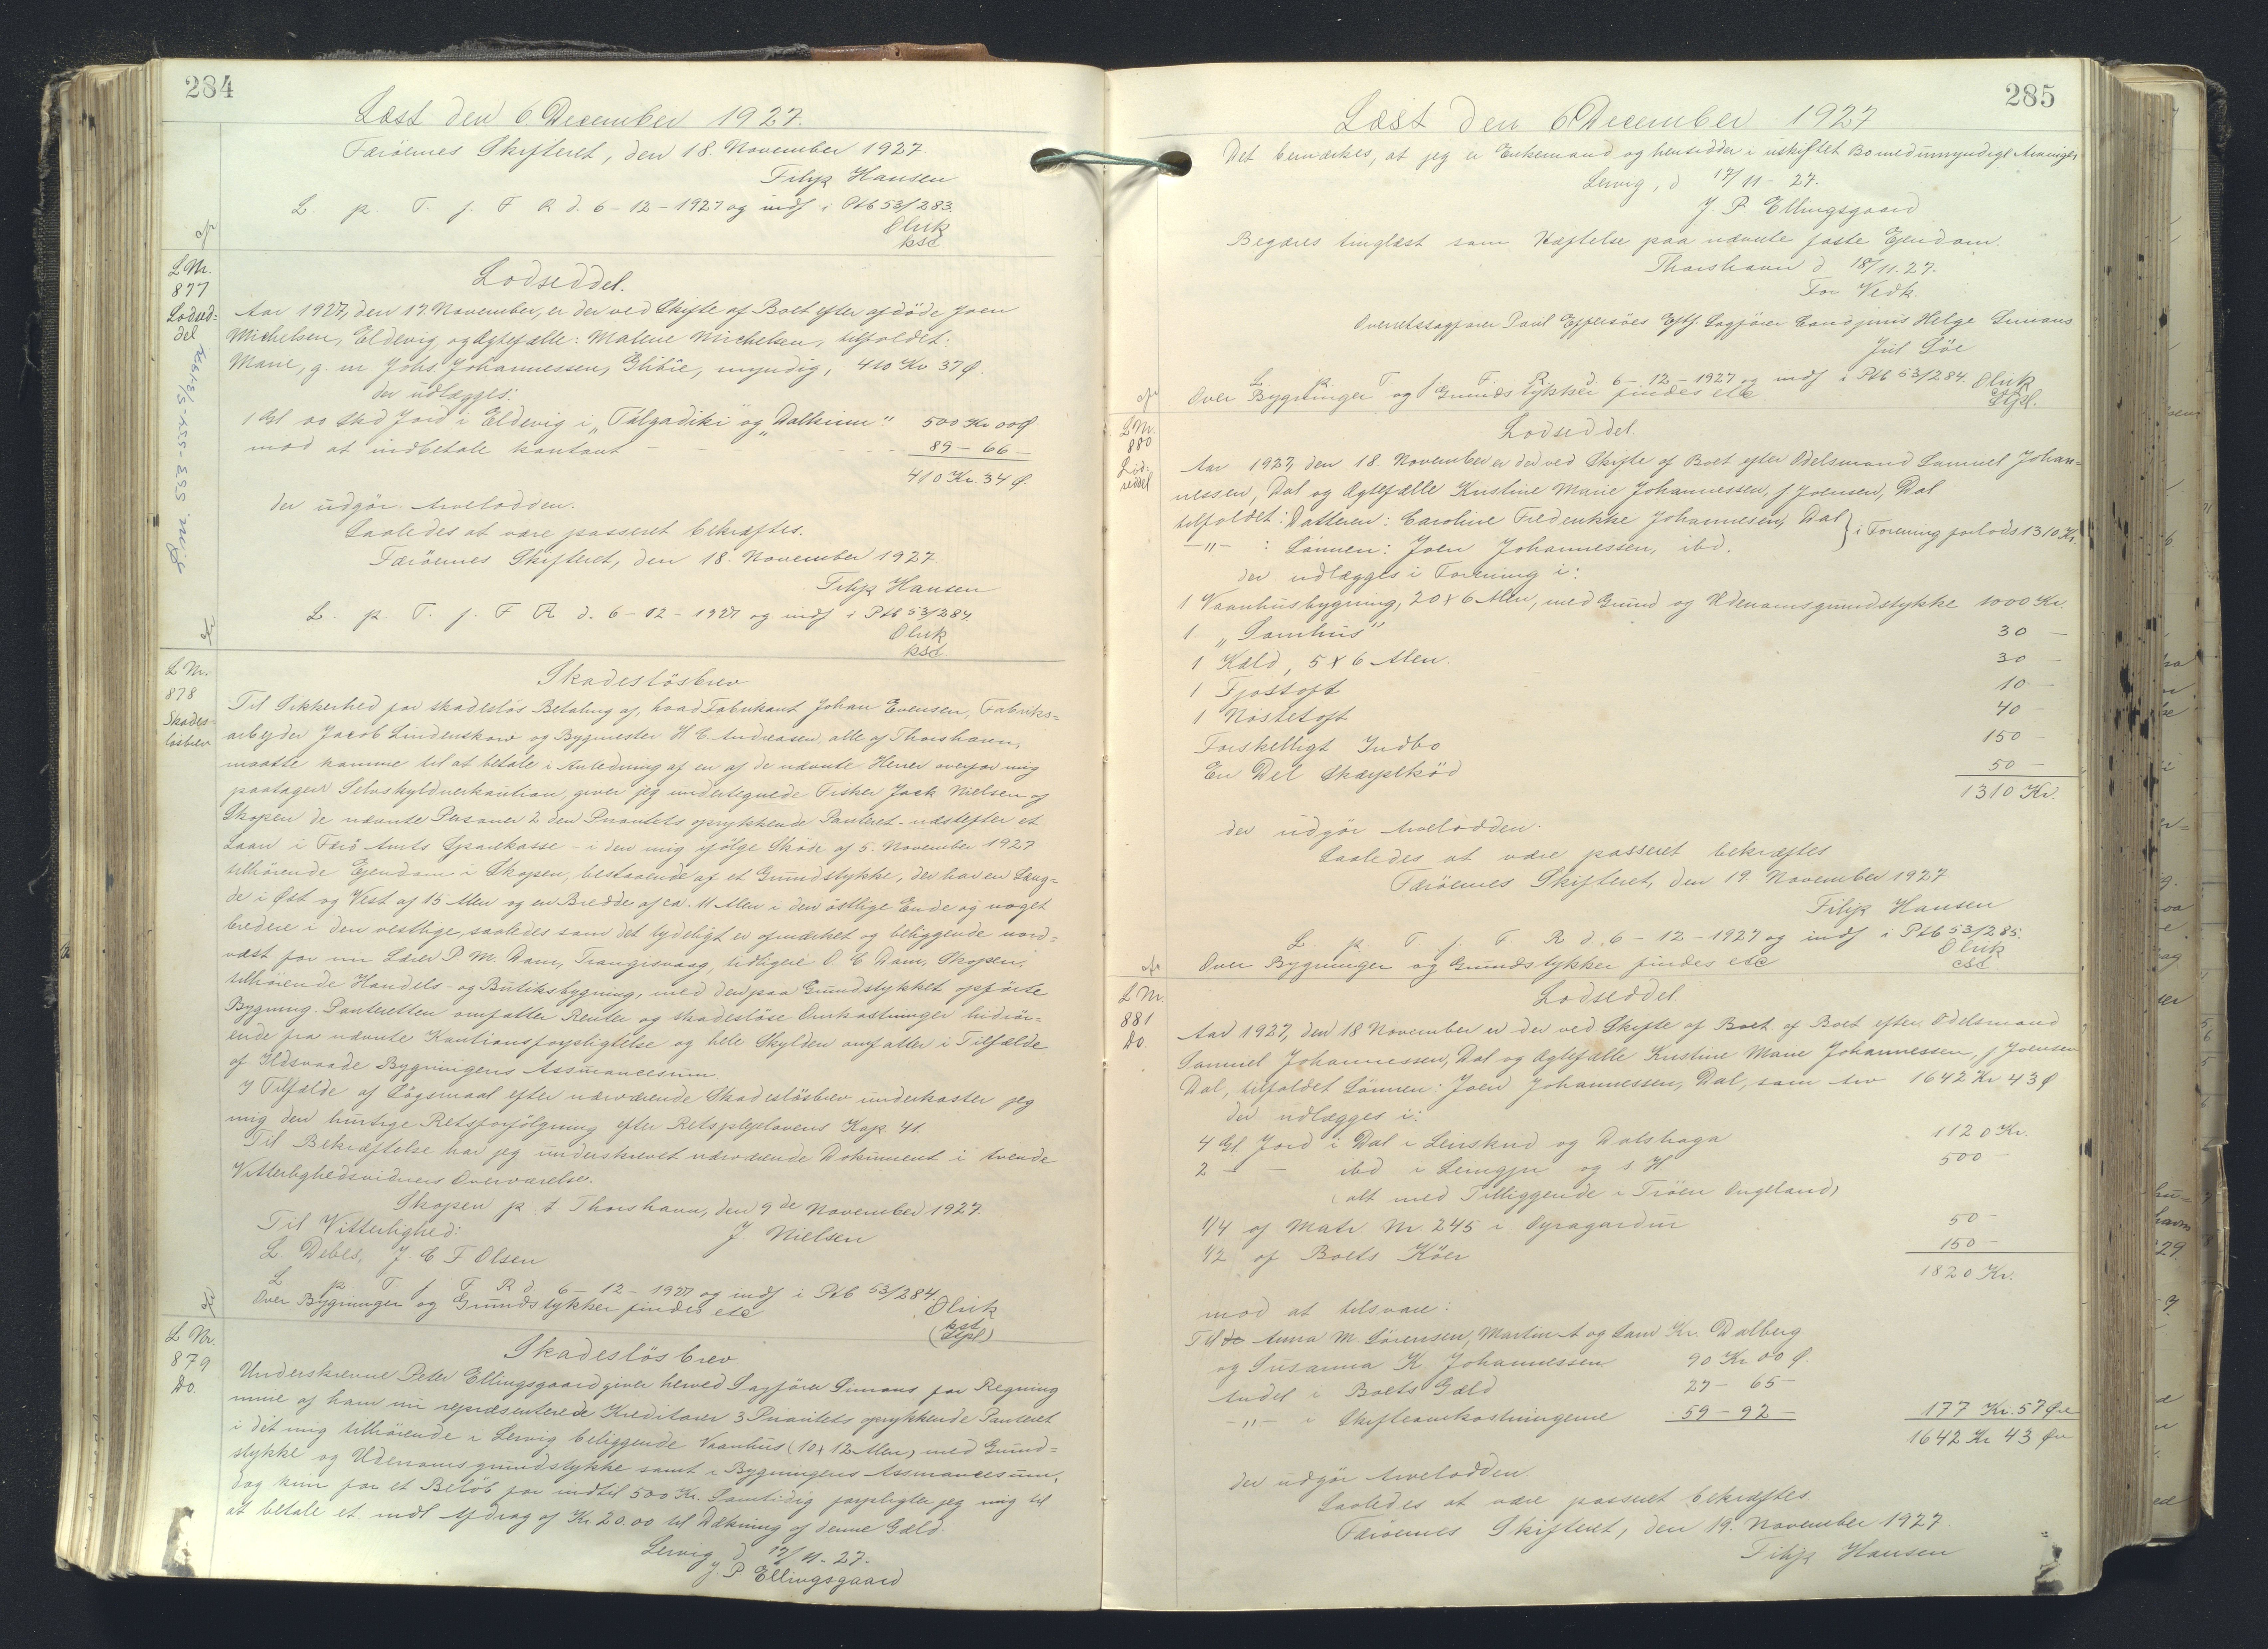 284
Læst den 6 December 1927.
Færöernes Skifteret, den 18. November 1927.
Filip Hansen
L. p. T. f. F R d. 6-12-1927 og indf i Ptb 53/283.
Olrik
kst
L Nr.
877
Lodsed=
del
Lodseddel.
Aar 1927, den 17. November, er der ved Skifte af Boet efter afdöde Joen
Michelsen, Eldevig, og Ægtefælle: Malene Michelsen, tilfaldet:
Marie, g. m Johs. Johannessen, Glibre, myndig, 410 Kr 37 Ø.
der udlægges:
1 Gl 00 Skd Jord i Eldevig i "Talgadiki" og "Dalkinn" 500 Kr 00 Ø
mod at indbetale kontant - - - 89 - 66 -
410 Kr. 34 Ø.
der udgör Arvelodden.
Saaledes at være passeret bekræftes.
Færöernes Skifteret, den 18. November 1927
Filip Hansen
L. p. T. f. F R d. 6-12-1927 og indf i Ptb 53/284.
Olrik
kst
L Nr.
878
Skades=
lösbrev
Skadeslösbrev
Til Sikkerhed for skadeslös Betaling af, hvad Fabrikant Johan Evensen, Fabriks=
arbejder Jacob Lindenskow og Bygmester H C. Andreasen, alle af Thorshavn,
maatte komme til at betale i Anledning af en af de nævnte Herrer overfor mig
paatagen Selvskyldnerkaution, giver jeg undertegnede Fisker Jack Nielsen af
Skopen de nævnte Personer 2 den Prioritets oprykkende Panteret - næstefter et
Laan i Færö Amts Sparekasse - i den mig ifölge Sköde af 5. November 1927
tilhörende Ejendom i Skopen, bestaaende af et Grundstykke, der har en Læng=
de i Öst og Vest af 15 Alen og en Bredde af ca. 11 Alen i den östlige Ende og noget
bredere i den vestlige, saaledes som det tydeligt er afmærket og beliggende nord=
vest for nu Lærer P. M. Dam, Trangisvaag, tidligere O. C Dam, Skopen,
tilhörende Handels- og Butiksbygning, med den paa Grundstykket opförte
Bygning. Panteretten omfatter Renter og skadeslöse Omkostninger hidrör=
ende fra nævnte Kautionsforpligtelse og hele Skylden omfatter i Tilfælde
af Ildsvaade Bygningens Assurancesum
I Tilfælde af Sögsmaal efter nærværende Skadeslösbrev underkaster jeg
mig den hurtige Retsforfölgning efter Retsplejelovens Kap. 41.
Til Bekræftelse har jeg underskrevet nærværende Dokument i tvende
Vitterlighedsvidners Overværelse.
Skopen p. t Thorshavn, den 9 de November 1927.
Til Vitterlighed: J. Nielsen
L. Debes, J. C F Olsen
L p. T. f. F. R d 6-12-1927 og indf i Ptb 53/284.
Over Bygninger og Grundstykker findes etc Olrik
kst
(Stpl)
L Nr.
879
Do.
Skadeslösbrev
Underskrevne Peter Ellingsgaard giver herved Sagförer Simons for Regning
mine af ham nu repræsenterede Kreditorer 3 Prioritets oprykkende Panteret
i det mig tilhörende i Lervig beliggende Vaanhus (10 x 12 Alen) med Grund=
stykke og Udenomsgrundstykke samt i Bygningens Assurancesum,
dog kun for et Belöb for indtil 500 Kr. Samtidig forpligter jeg mig til
at betale et mdl Afdrag af Kr 20.00 til Dækning af denne Gæld.
Lervig, d 17/11-27.
J. P Ellingsgaard
285
Læst den 6 December 1927
Det bemærkes, at jeg er Enkemand og hensidder i uskiftet Bo med umyndige Arvinger
Lervig, d 17/11-27.
J. P. Ellingsgaard
Begæres tinglæst som Hæftelse paa nævnte faste Ejendom.
Thorshavn d 18/11.27.
For Vedk.
Overretssagförer Poul Effersöes Eftf. Sagförer Cand juris Helge Simons
Jul Söe
L p T f. F. R. d 6-12-1927 og indf i Ptb 53/284. Olrik
Over Bygninger og Grundstykker findes etc
Stpl.
L Nr.
880
Lod=
seddel
Lodseddel
Aar 1927, den 18. November er der ved Skifte af Boet efter Odelsmand Samuel Johan=
nessen, Dal og Ægtefælle Kristine Marie Johannessen, f Joensen, Dal
tilfaldet: Datteren: Caroline Frederikke Johannesen, Dal } i Forening forlods 1310 Kr.
-"- : Sönnen: Joen Johannessen, ibd.
der udlægges i Forening i:
1 Vaanhusbygning, 20 x 6 Alen, med Grund og Udenomsgrundstykke 1000 Kr.
1 "Sornhus" 30 -
1 Kæld, 5 x 6 Alen. 30 -
1 Fjostoft 10 -
1 Nöstetoft 40 -
Forskelligt Indbo 150 -
En Del Skærpekjöd 50 -
1310 Kr.
der udgör Arvelodden.
Saaledes at være passeret bekræftes
Færöernes Skifteret, den 19. November 1927
Filip Hansen
L p T. f. F. R d. 6-12-1927 og indf i Ptb 53/285.
Olrik
Over Bygninger og Grundstykker findes etc cst
L Nr.
881
Do.
Lodseddel
Aar 1927, den 18 November er der ved Skifte af Boet af Boet efter Odelsmand
Samuel Johannessen, Dal og Ægtefælle Kristine Marie Johannessen, f Joensen
Dal, tilfaldet Sönnen: Joen Johannessen, Dal, som Arv 1642 Kr 43 Ø
der udlægges i:
4 Gl Jord i Dal i Leirskrid og Dalshaga 1120 Kr.
2 - - ibd i og s. H. 500 -
(alt med Tilliggende i Tröen Ongeland)
1/4 af Matr Nr. 245 i Oyragardur 50 -
1/2 af Boets Köer 150 -
1820 Kr.
mod at tilsvare:
Til de Anna M. Sörensen, Martin A og Sam Kr. Dalberg
og Susanna K Johannessen 90 Kr 00 Ø.
Andel i Boets Gæld 27 - 65 -
-"- i Skifteomkostningerne 59 - 92 - 177 Kr. 57 Øre
1642 Kr 43 Øre
der udgör Arvelodden
Saaledes at være passeret bekræftes
Færöernes Skifteret, den 19. November 1927
Filip Hansen